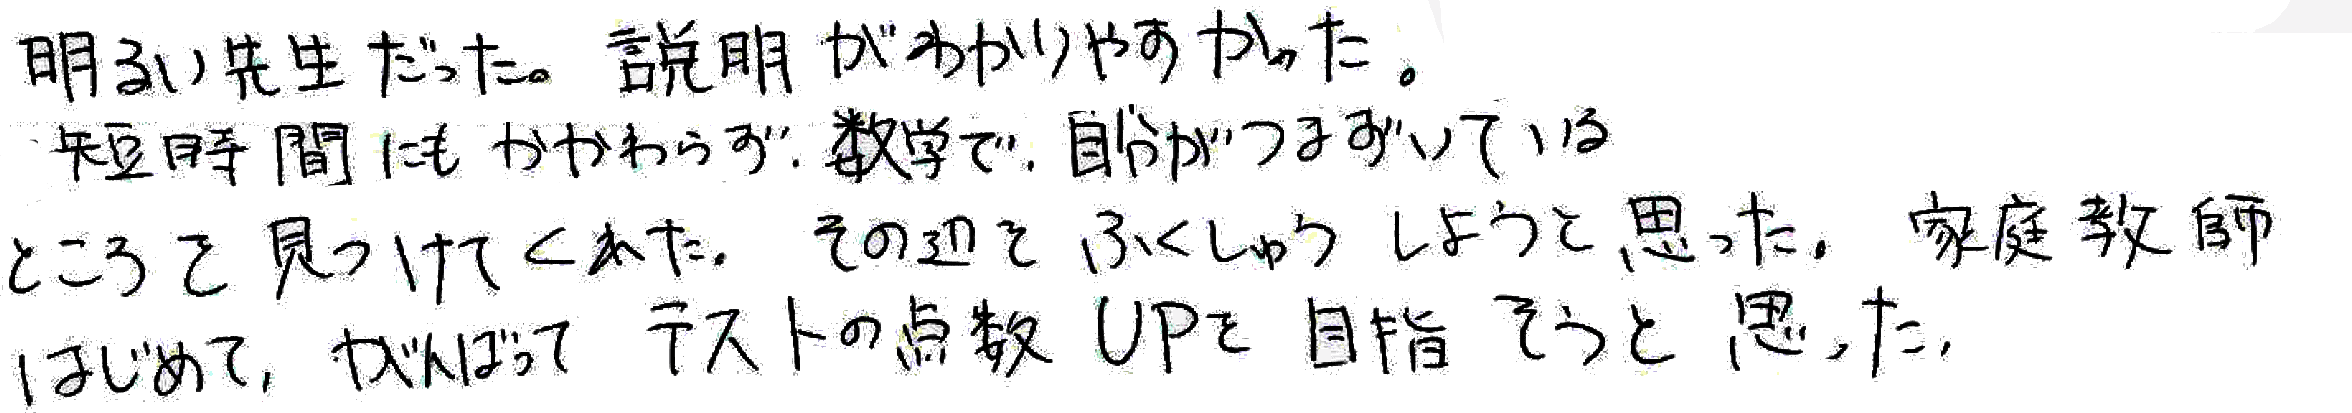 明るい先生だった。説明がわかりやすかった。
短時間にもかかわらず、数学で、自分がつまずいている
ところを見つけてくれた。その辺をふくしゅうしようと思った。家庭教師
はじめて、がんばってテストの点数UPを目指そうと思った。